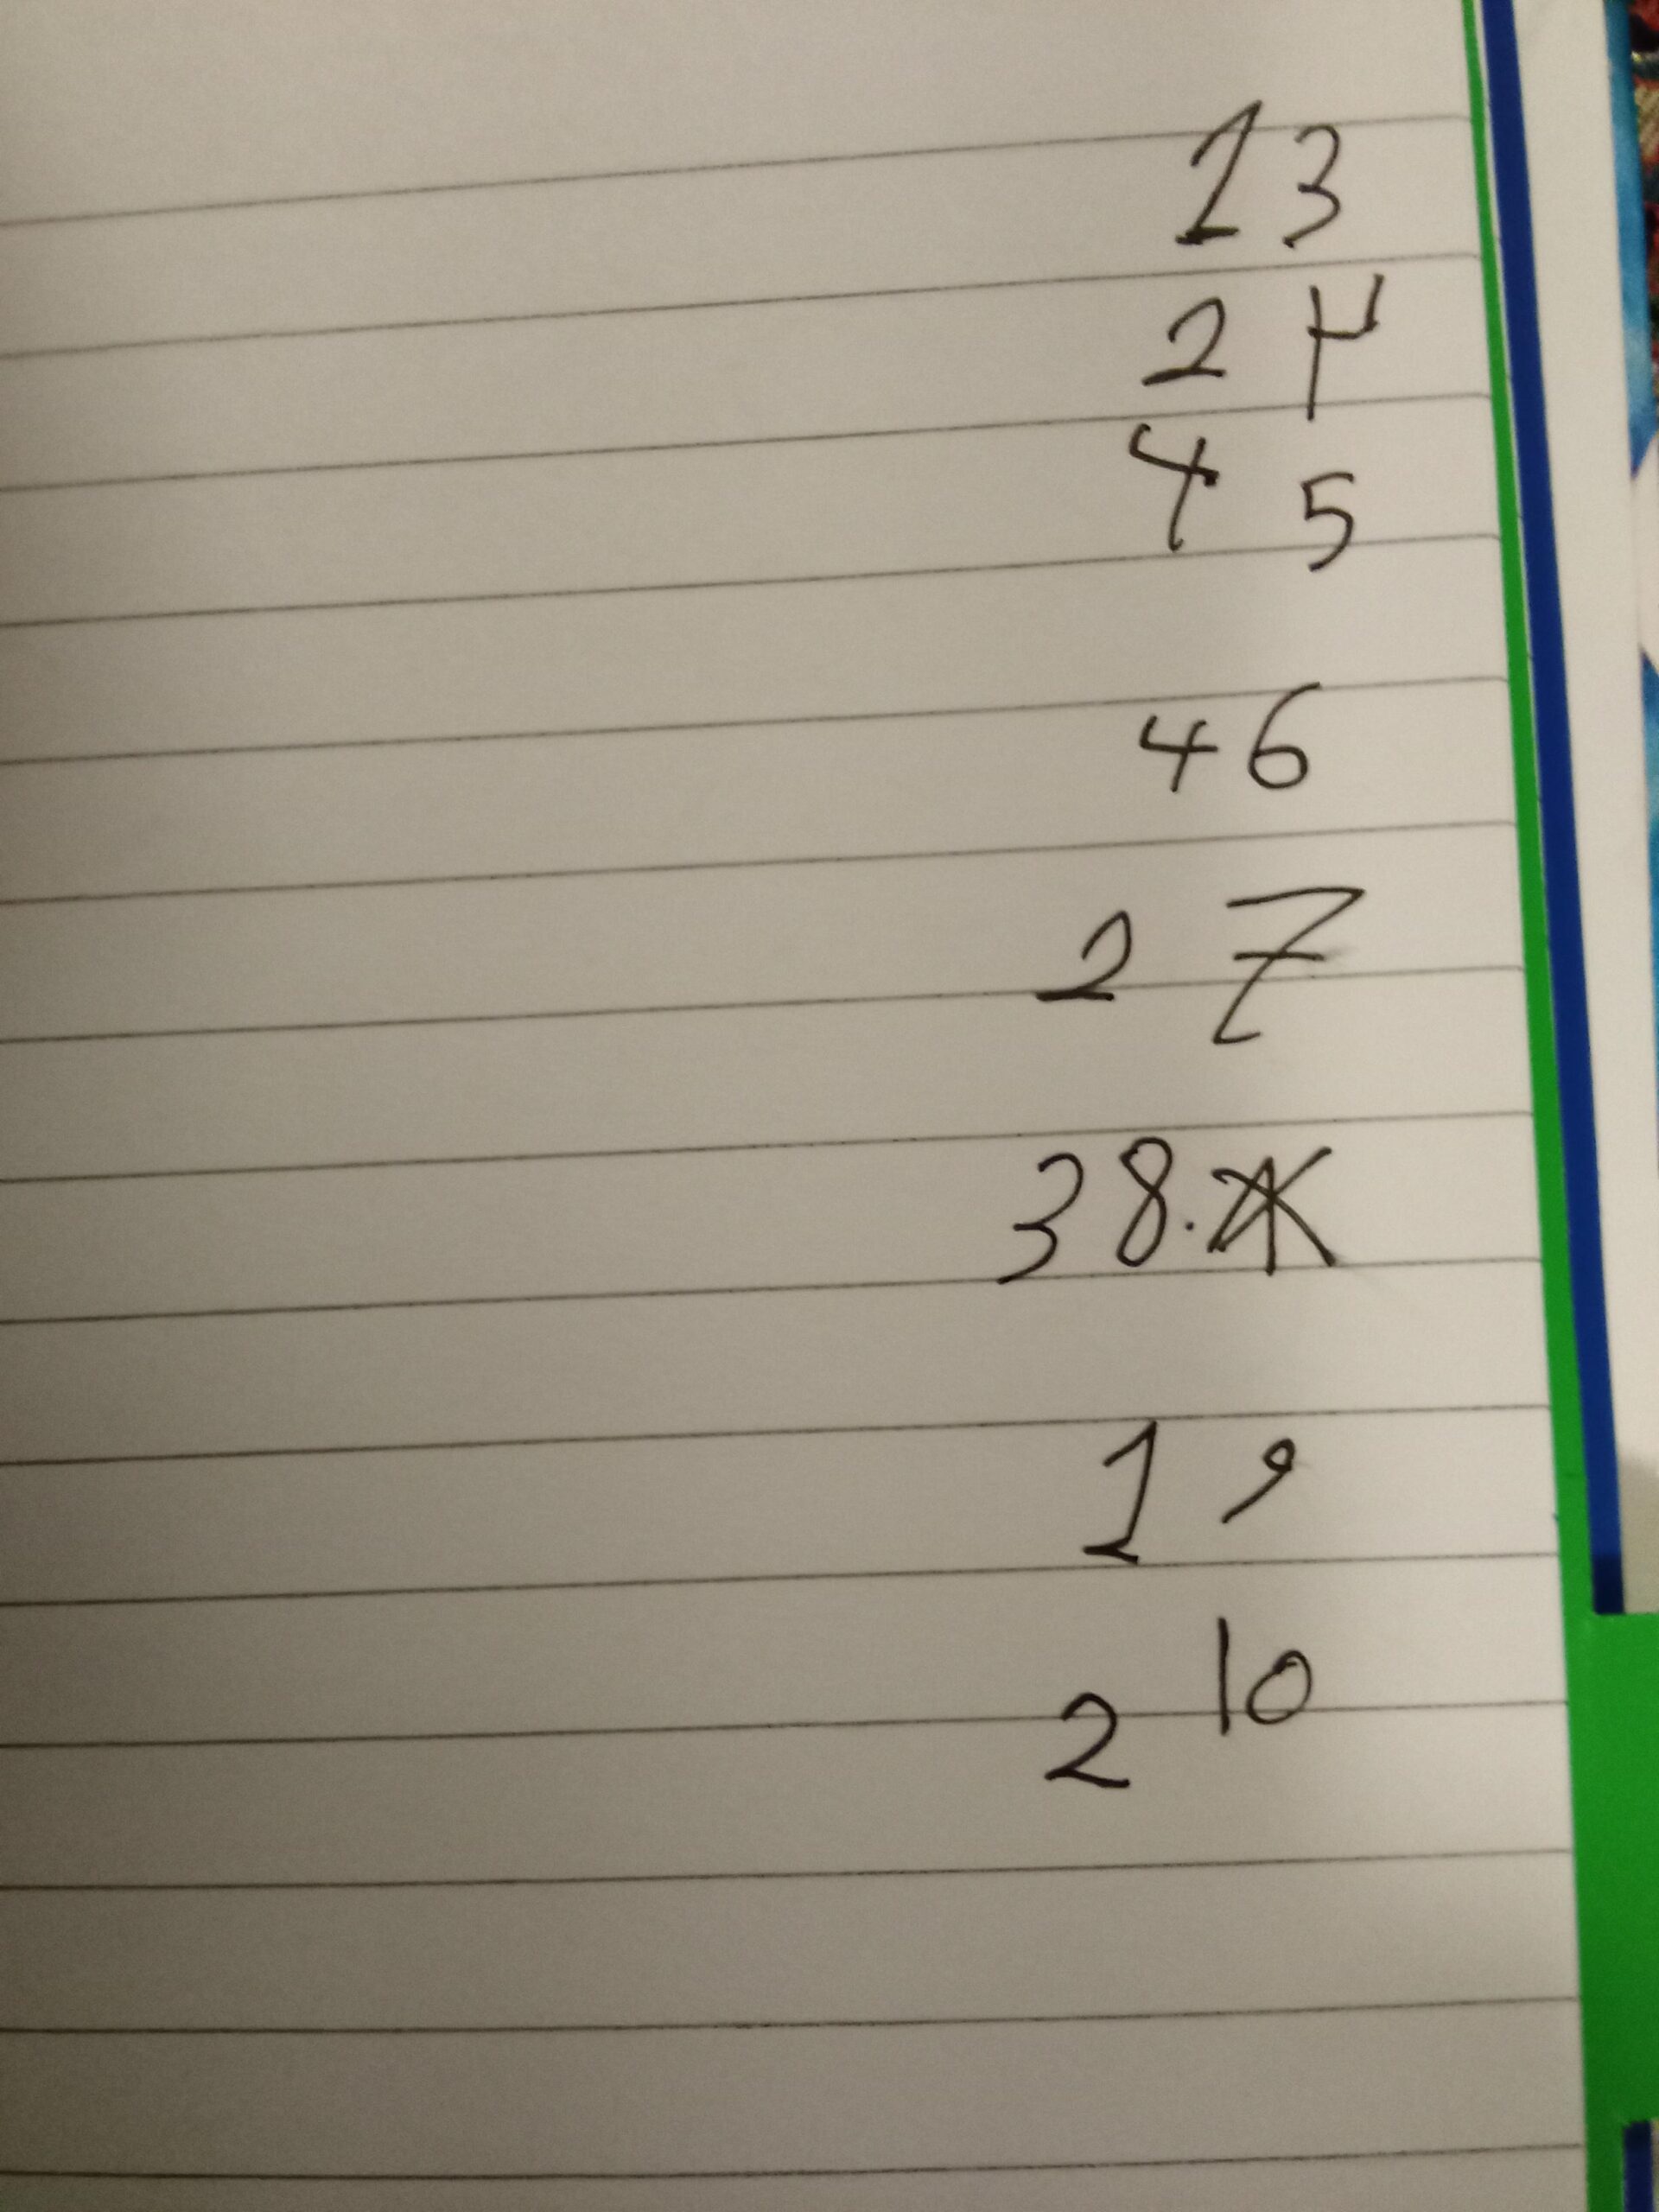 1 3
2 4
4 5
4 6
2 7
3 8.
1 9
2 10